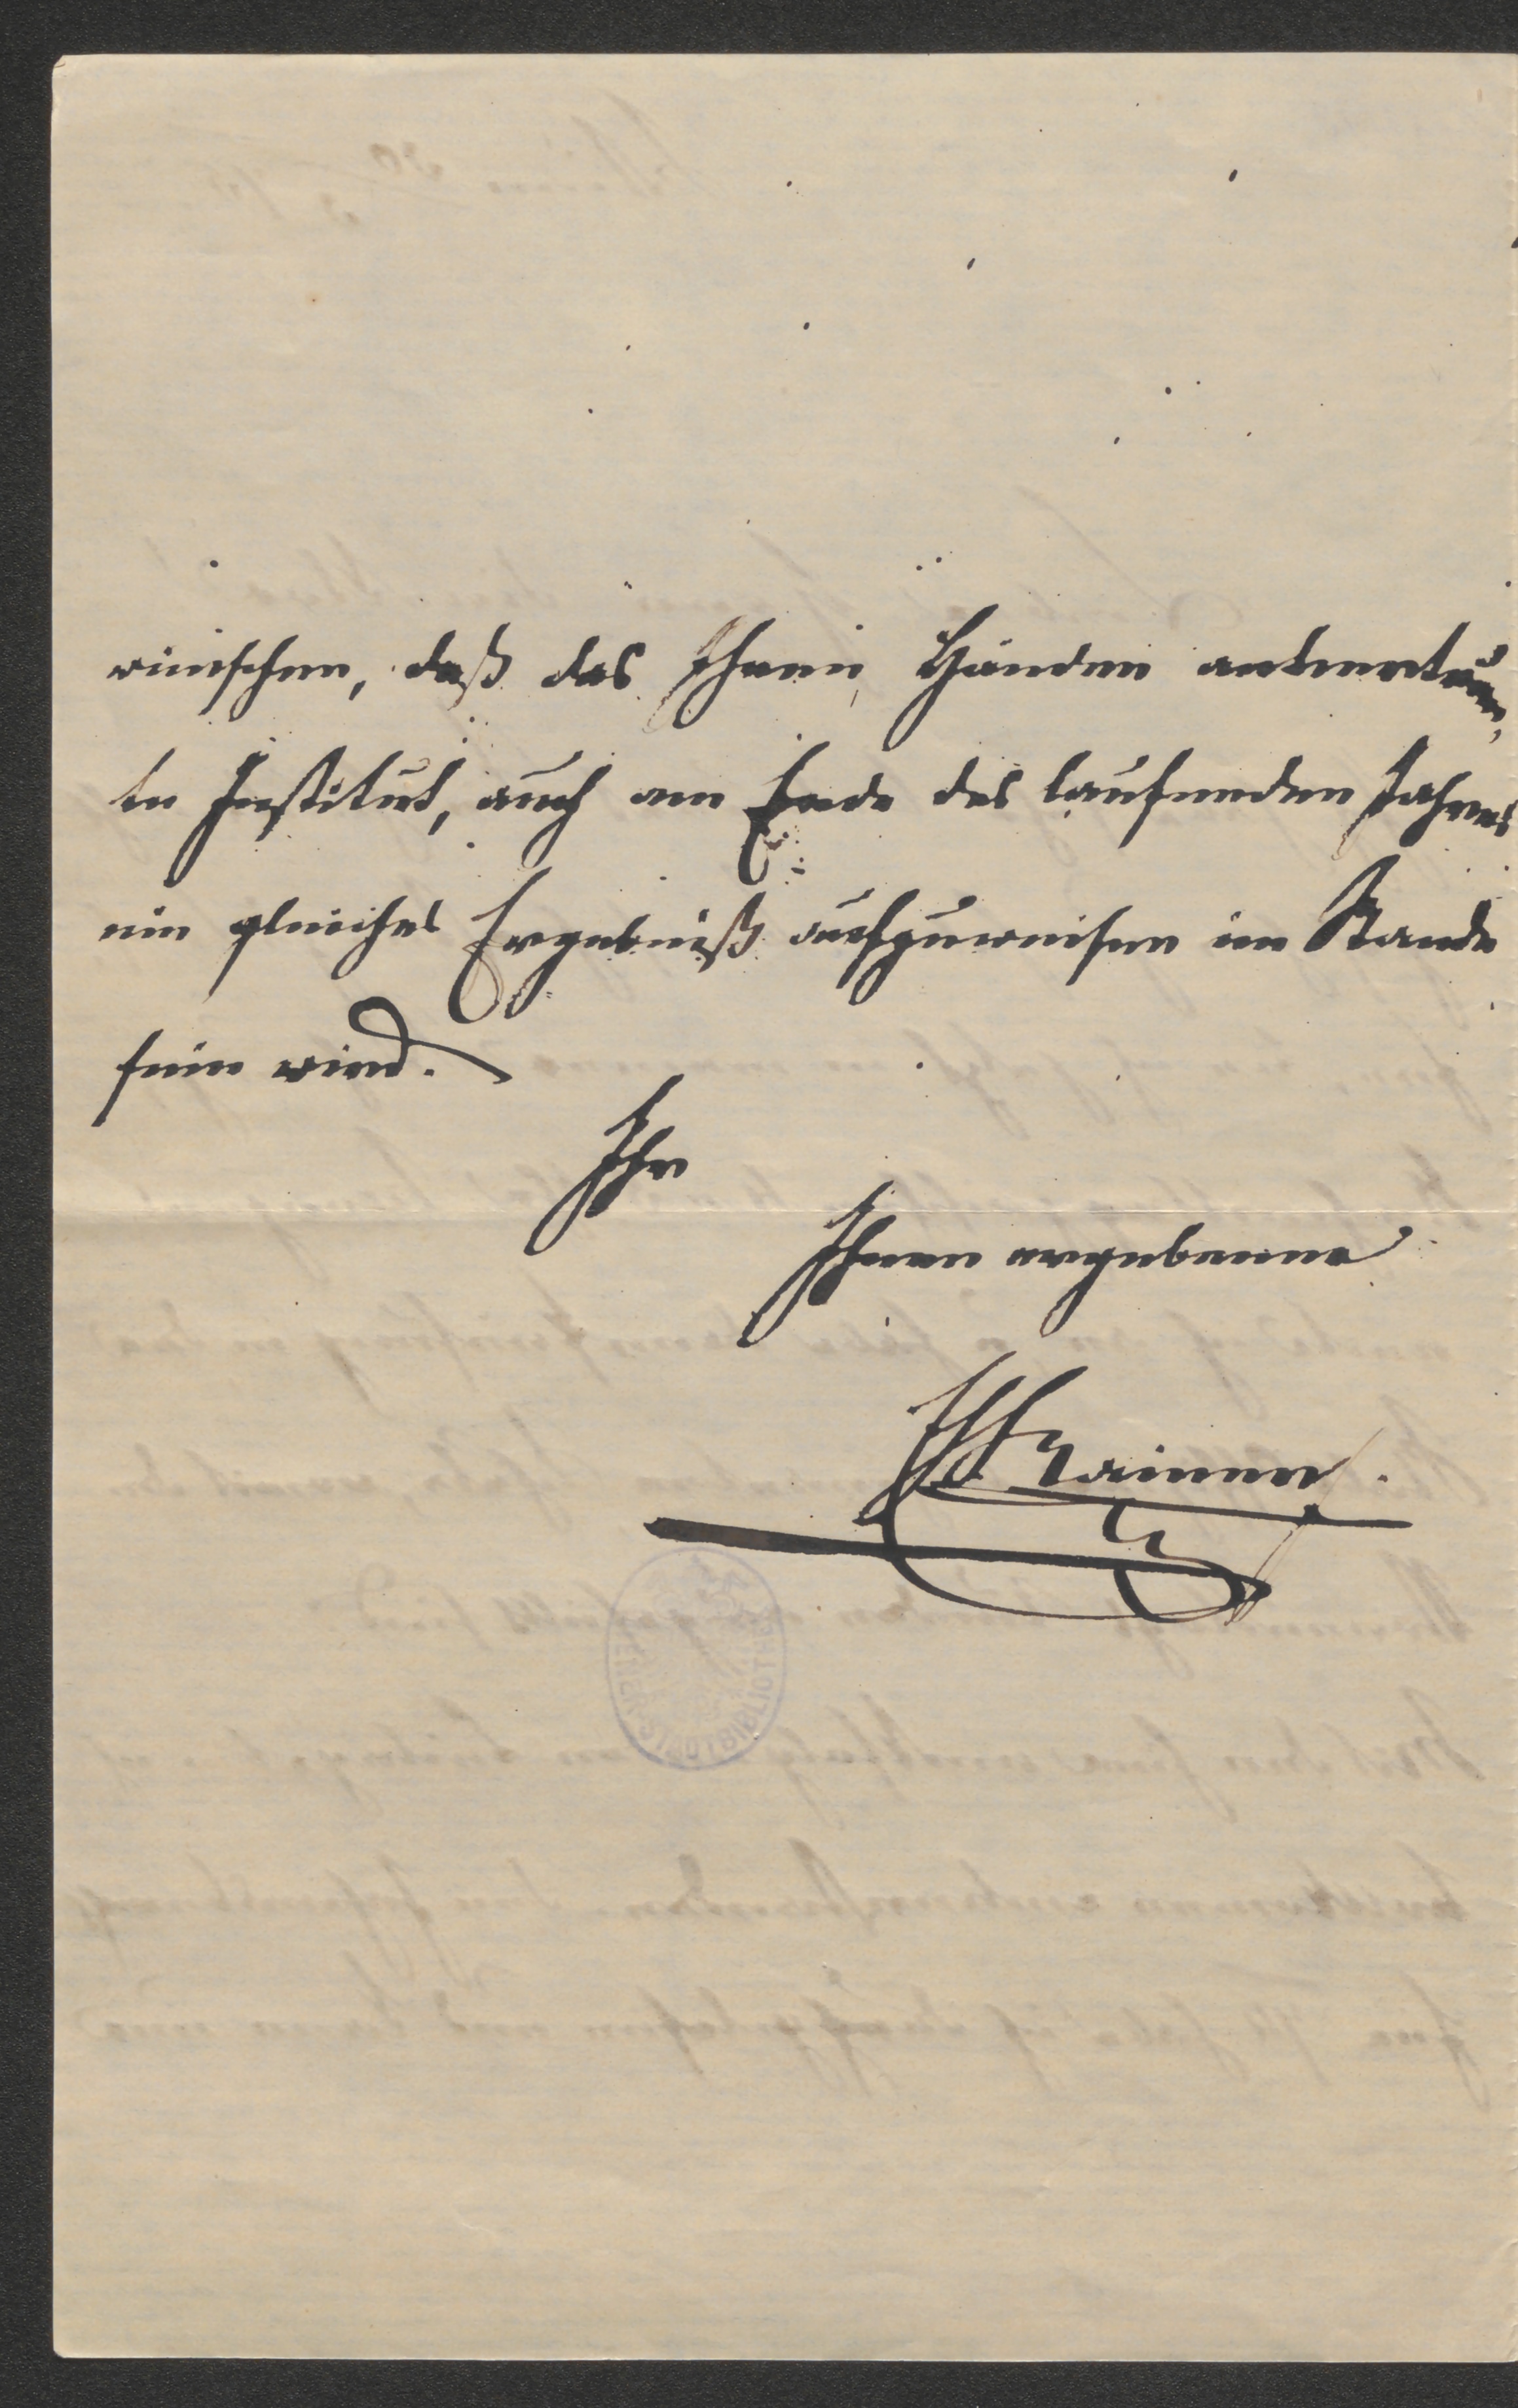 wünschen, daß das Ihren Händen anvertrau-
te Institut, auch am Ende des laufenden Jahres
ein gleiches Ergebniß aufzuweisen im Stande
sein wird.
Ihr
Ihnen ergebener
STADTBIBLIOTHEK